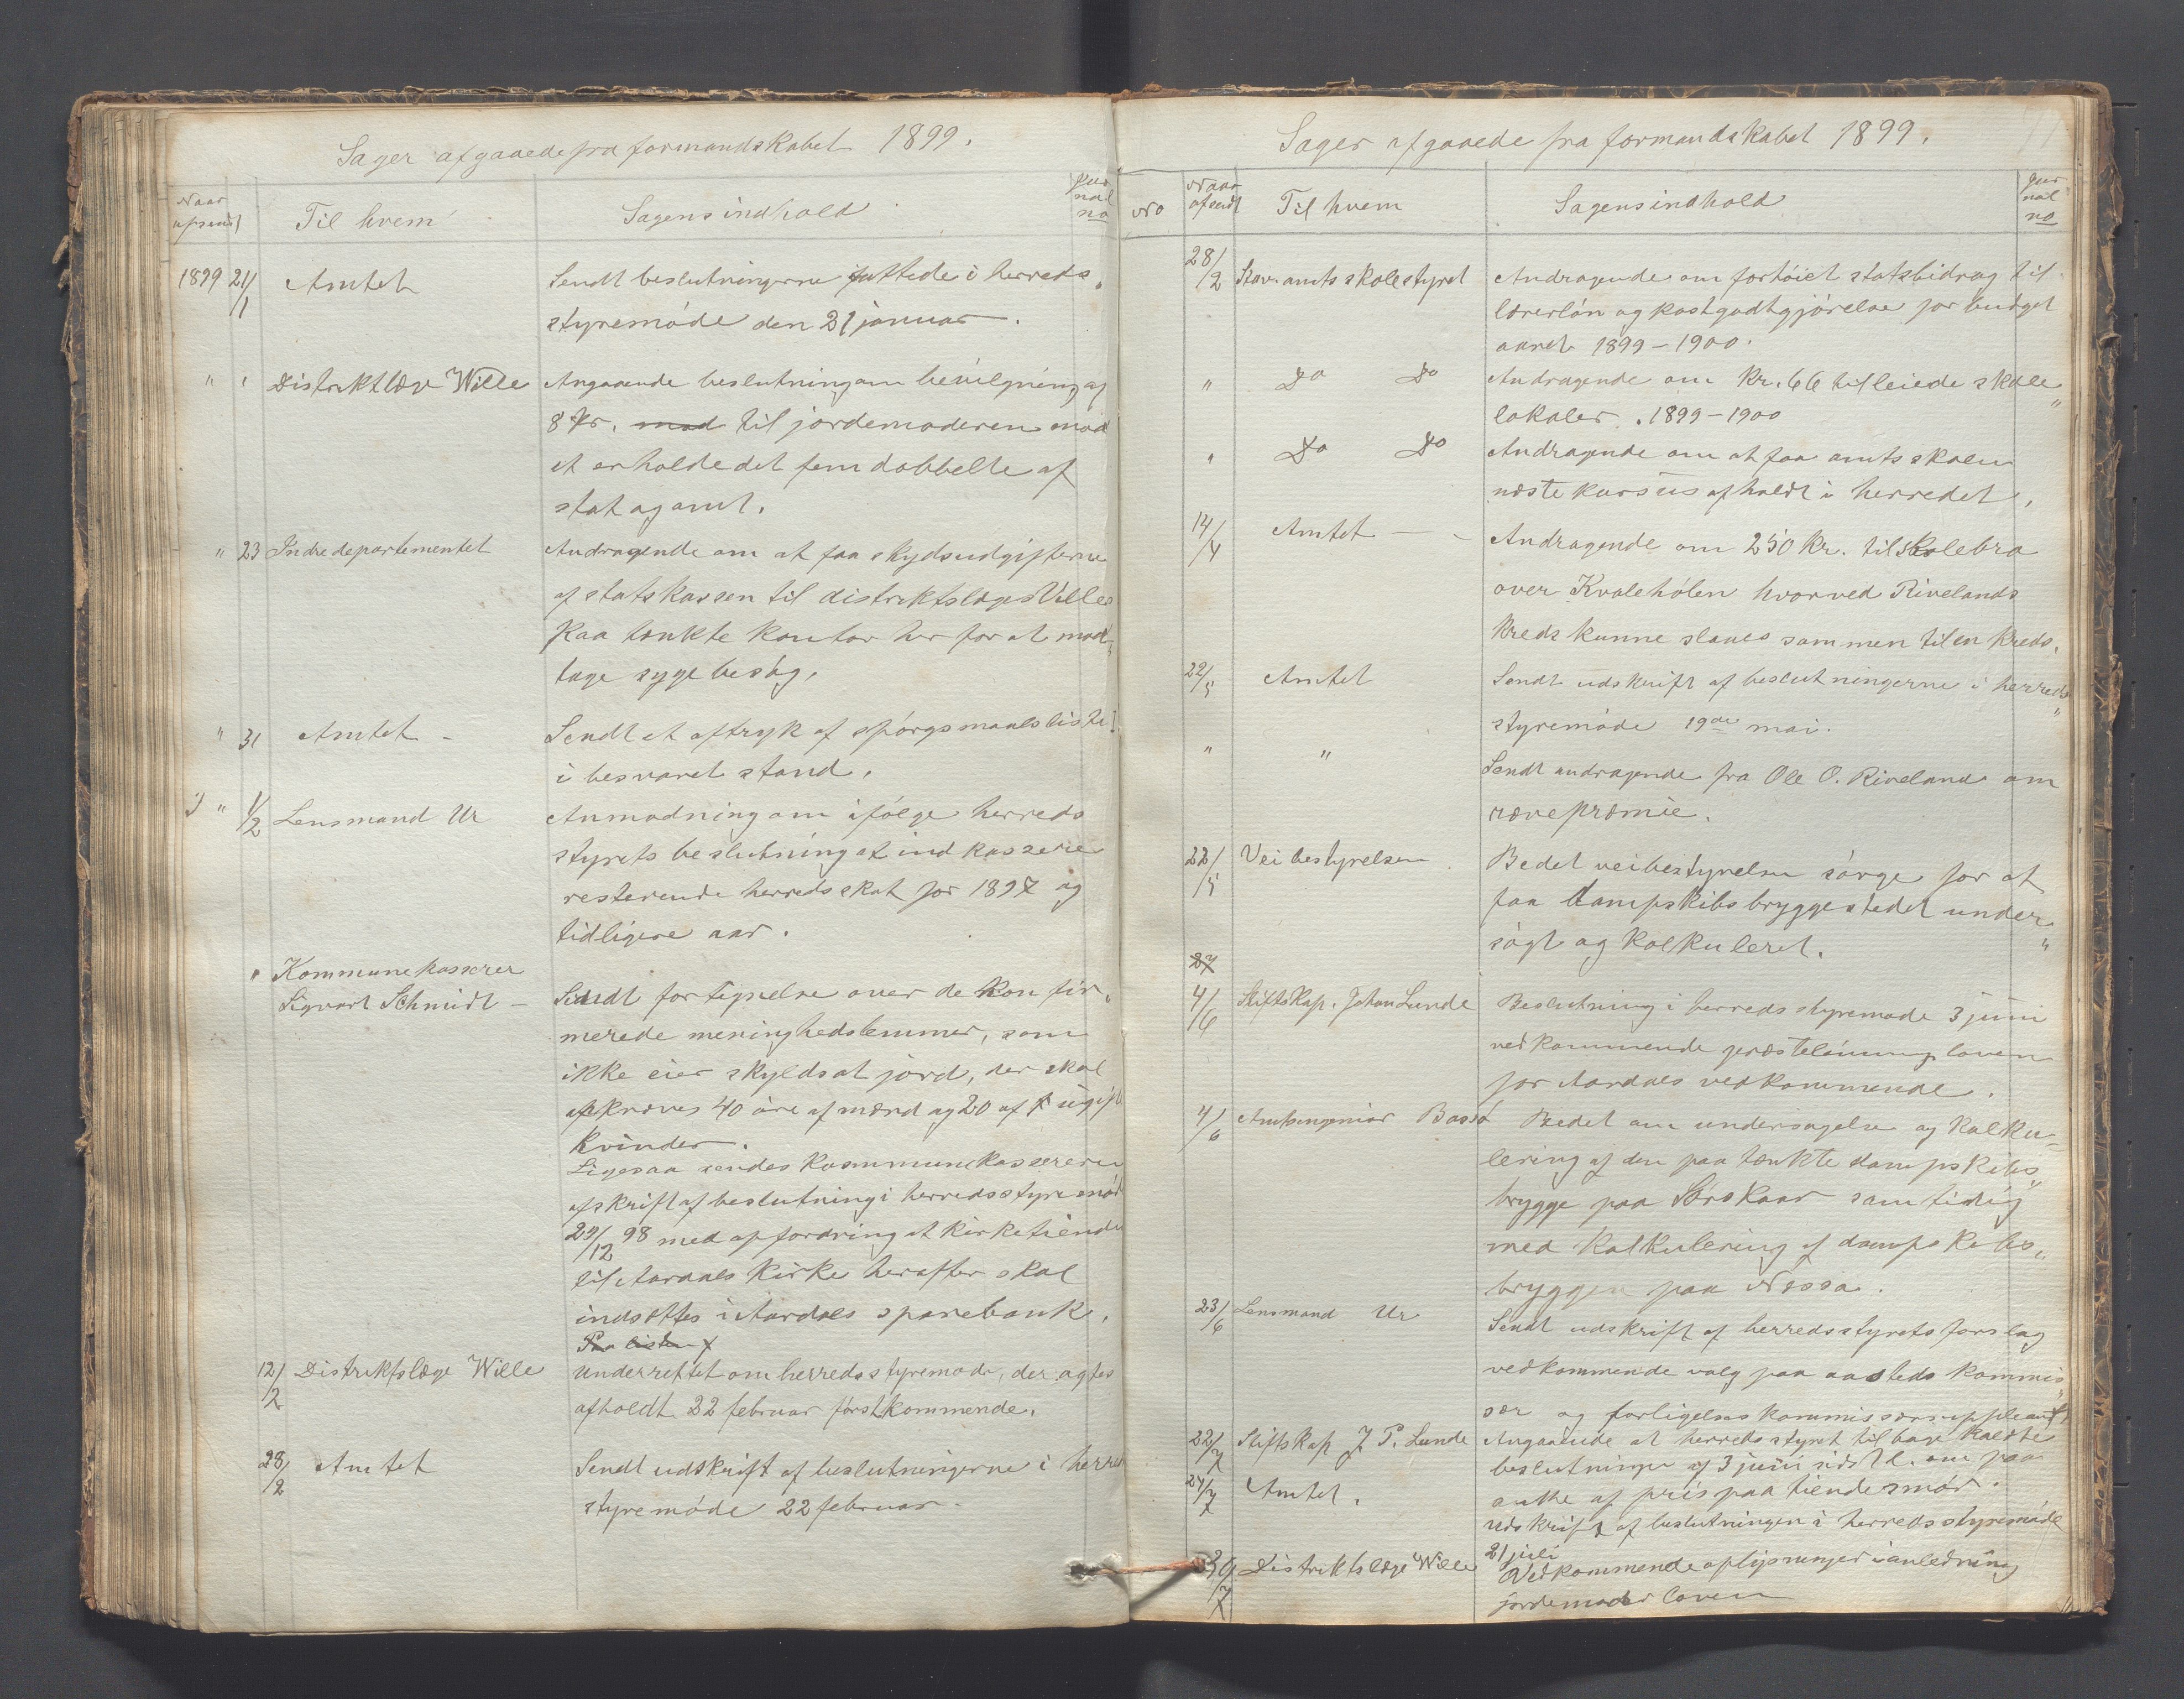 Sager afgaaede fra formandskabet 1899.
Naar afsendt
Til hvem
Sagens indhold
Jur nal no
1899 21/1 Amtet
Sendt beslutningerne fattede i herreds
styremøde den 21 januar.
" " Distriktlæge Wille
Angaaende beslutning om bevilgning af
8 Kr. mod til jordemoderen mod
at erholde det femdobbelte af
stat og amt.
" 23 Indredepartementet
Andragende om at faa skydsudgifterne
af statskassen til distriktslæge Villes
paa tænkte kontor her for at mod„
tage sygebesøg.
" 31 Amtet -
Sendt et aftryk af spørgsmaalsliste
i besvaret stand.
" 1/2 Lensmand Ur
Anmodning om ifølge herreds
styrets beslutning at indkassere
resterende herredsskat for 1897 og
tidligere aar.
" Kommunekasserer
Sigvart Schmidt -
Sendt fortegnelse over de konfir„
merede menighedslemmer, som
ikke eier skyldsat jord, der skal
afkræves 40 øre af mænd og 20 af ugift
kvinder.
Ligesaa sendes Kommunekassereren
afskrift af beslutning i herredsstyremød
29/12 98 med opfordring at kirketiende
til Aardals kirke herafter skal
indsættes i Aardals sparebank.
Paa listen f
12/2 Distriktslæge Wille
Underrettet om herredsstyremøde, der agtes
afholdt 22 februar førstkommende.
28/2 Amtet
Sendt udskrift af beslutningerne i herred
styremøde 22 februar.
Sager afgaaede fra formandskabet 1899.
No
Naar afsendt
Til hvem
Sagens indhold
Jur nal no
28/2 Stav. amts skolestyret
Andragende om forhøiet statsbidrag til
lærerløn og kostgodtgjørelse for budget
aaret 1899-1900.
" Do Do
Andragende om Kr. 66 til leiede skole„
lokaler. 1899-1900
" Do Do
Andragende om at faa amtsskolen
næste kursus afholdt i herredet.
14/4 Amtet - -
Andragende om 250 Kr. til skolebro
over Kvalehølen hvorved Rivelands
kreds kunne slaaes sammen til en kreds.
22/5 Amtet
Sendt udskrift af beslutningerne i herreds„
styremøde 19de mai.
" "
Sendt andragende fra Ole O. Riveland om
rævepræmie.
22/5 Veibestyrelsen
Bedet veibestyrelsen sørge for at
faa dampskibsbryggestedet under„
søgt og kalkuleret.
27
4/6 Stiftskap. Johan Lunde
Beslutning i herredsstyremøde 3 juni
vedkommende præstelønningsloven
for Aardals vedkommende.
4/6 Amtsingeniør Bassø
Bedet om undersøgelse og kalku„
lering af den paatænkte dampskibs„
brygge paa Sørskaar samtidig
med kalkulering af dampskibs„
bryggen paa Nessa.
23/6 Lensmand Ur
Sendt udskrift af herredsstyrets forslag
vedkommende valg paa aasteds kommis„
sær og forligelseskommissærsuppleant
22/7 Stiftskap J. P. Lunde
Angaaende at herredsstyret tilbagekaldte
beslutningen af 3 juni sidstl. om paa
anke af pris paa tiendesmør.
24/7 Amtet.
Udskrift af beslutningen i herredsstyremøde
21 juli
30/7 Distriktslæge Wille
Vedkommende oplysninger i anledning
jordemoderloven